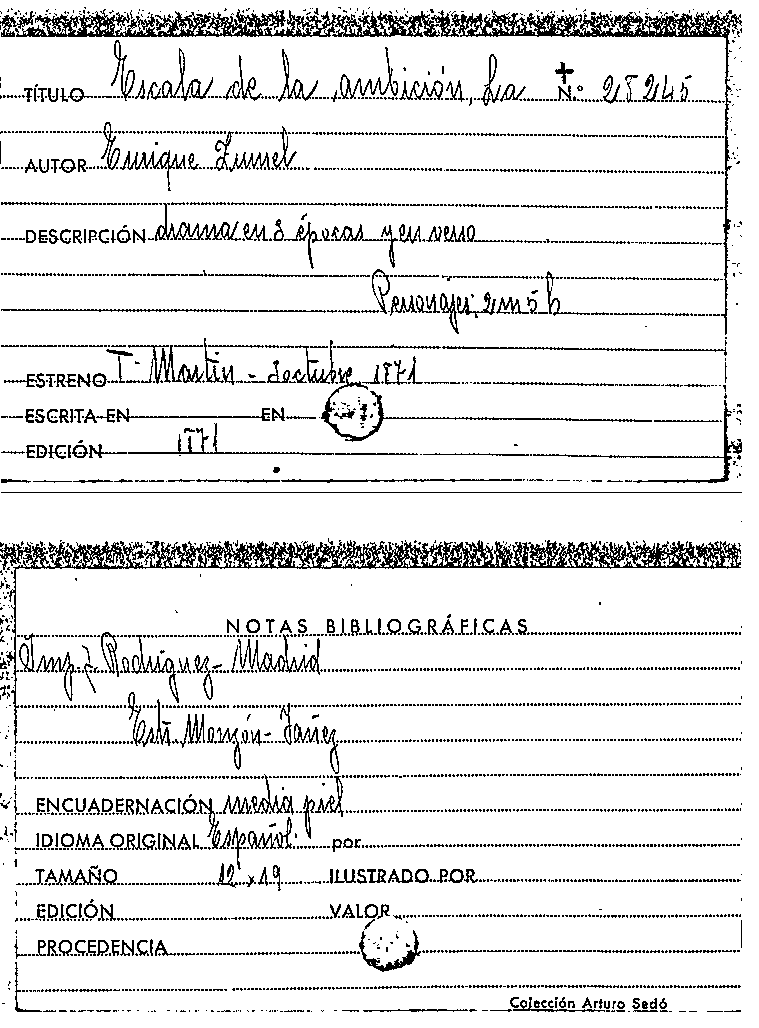 TÍTULO Escala de la ambición, La N.º 28245
AUTOR Enrique Zumel
DESCRIPCIÓN drama en 3 épocas y en verso
Personajes: 2 m 5 h
ESTRENO T. Martin - octubre 1871
ESCRITA EN EN
EDICIÓN 1871
NOTAS BIBLIOGRÁFICAS
Imp. J. Rodriguez - Madrid
Estr. Monzón - Yañez
ENCUADERNACIÓN media piel
IDIOMA ORIGINAL Español. por
TAMAÑO 12 x 19 ILUSTRADO POR
EDICIÓN VALOR
PROCEDENCIA
Colección Arturo Sedó